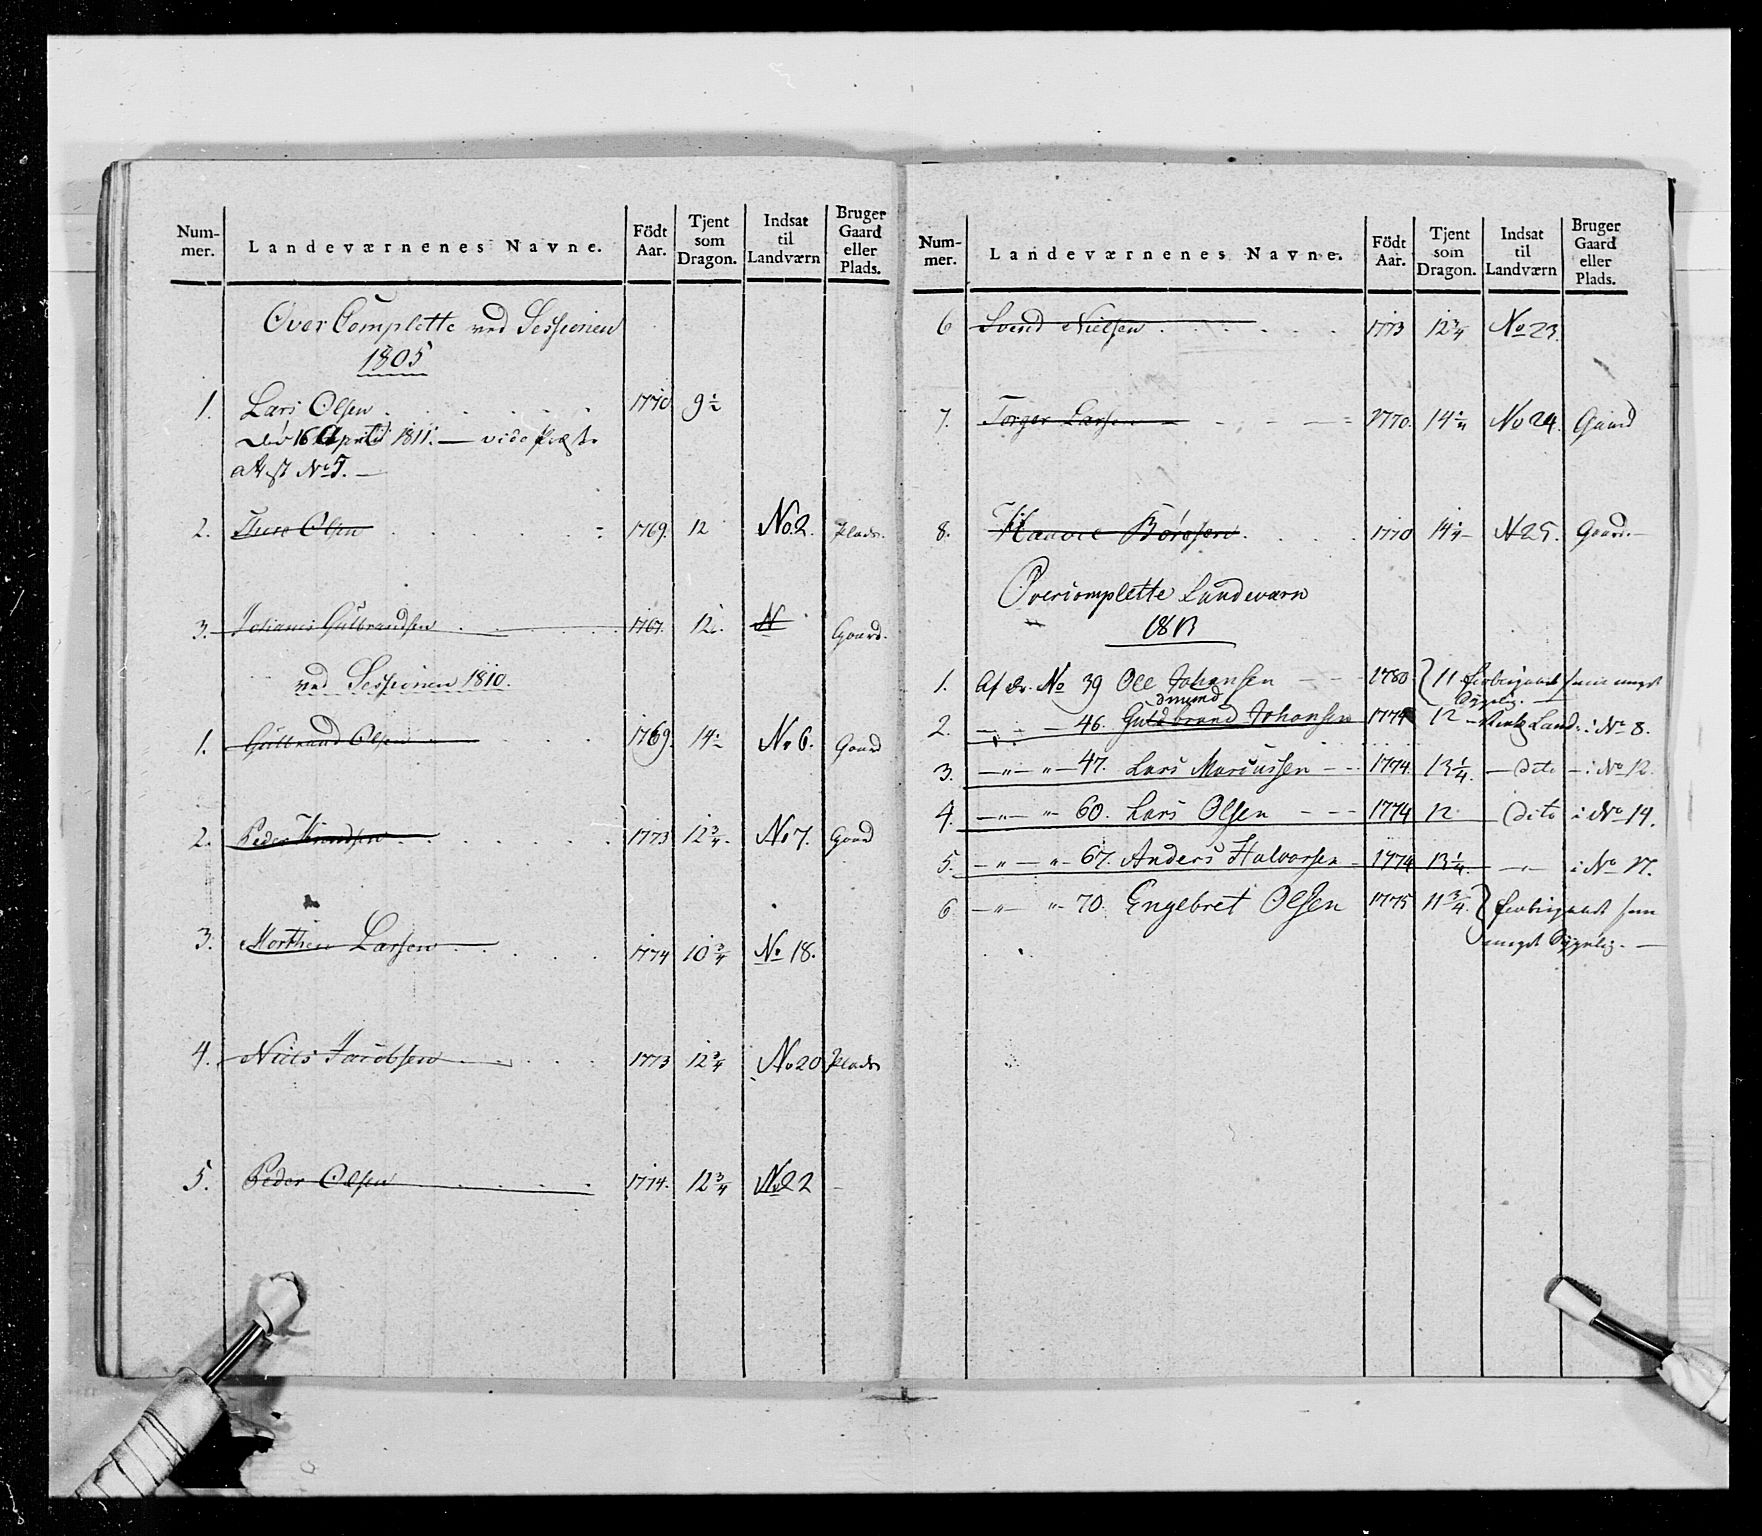 Num-
mer.
Landeværnenes Navne.
Födt
Aar.
Tjent
som
Dragon.
Indsat
til
Landværn
Bruger
Gaard
eller
Plads.
Over Complette ved Sessionen
1805
1. Lars Olsen 1770 9½
død 16 April 1811. — vide Præste
attest No 5. —
2. Thore Olsen 1769. 12 No 2. Plads.
3. Johanes Gulbrandsen 1767. 12. N Gaard.
ved Sessionen 1810.
1. Gulbrand Olsen 1769. 14 No 6. Gaard
2. Peder Knudsen 1773 12¾. No 7. Gaard
3. Morthen Larsen 1774 10¾ No 18.
4. Niels Jacobsen 1773 12¾ No 20 Plads
5. Peder Olsen 1774. 12¾ No 22
Num-
mer.
Landeværnenes Navne.
Födt
Aar.
Tjent
som
Dragon.
Indsat
til
Landværn
Bruger
Gaard
eller
Plads.
6 Svend Nielsen 1773 12¾ No 23.
7. Torger Larsen 1770. 14¼ No 24. Gaard
8. Haavel Börresen 1770 14¼ N 25. Gaard.
Overcomplette Landeværn
1813
1. Af Dr. No 39 Ole Johansen 1780 11 forbigaaet som meget
Sygelig. —
2. — " — 46. Guldbrand Johansen 1774 12 Land: i No 8.
3. — " — " — 47. Lars Marcussen — 1774. 13¼. — dito — i No 12.
4. — " — " — 60. Lars Olsen — 1774 12 dito i No 14.
5. — " — " — 67. Anders Halvorsen — 1774 13¼. — " — i No 17.
6 — " — " — 70. Engebret Olsen 1775 11¾. forbigaaet som
meget Sygelig. —